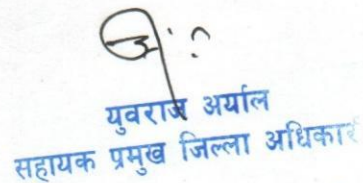 युवराज अर्याल
सहायक प्रमुख जिल्ला अधिकारी